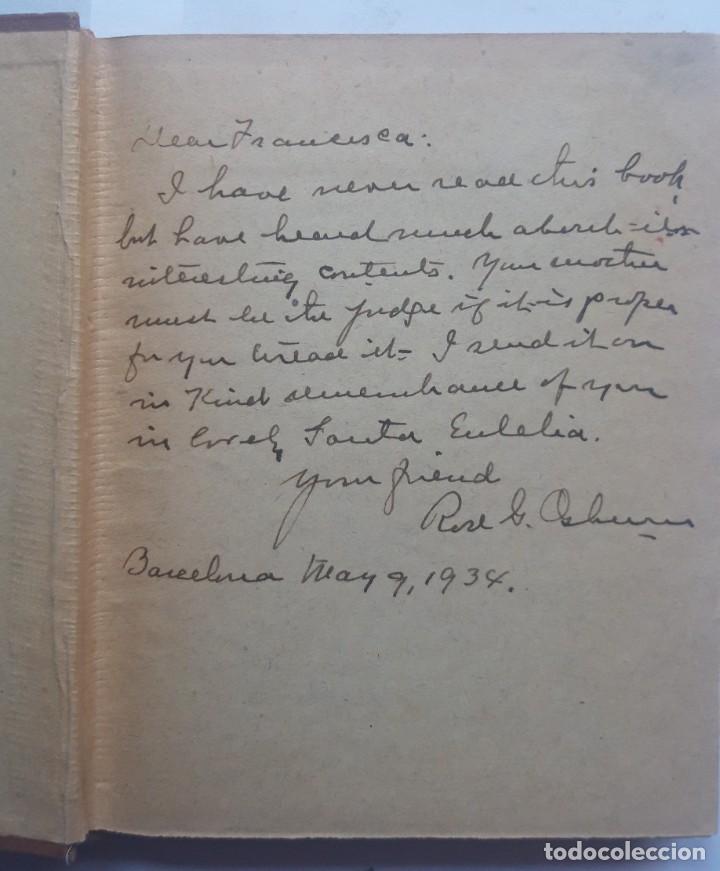 Dear Francisca:
I have never read this book,
but have heard much about its
interesting contents. Your mother
must be the judge if it is proper
for you to read it - I send it on
in Kind remembrance of you
in lovely Santa Eulelia.
Your friend
Rose G. Osburn
Barcelona May 9, 1934.
todocoleccion